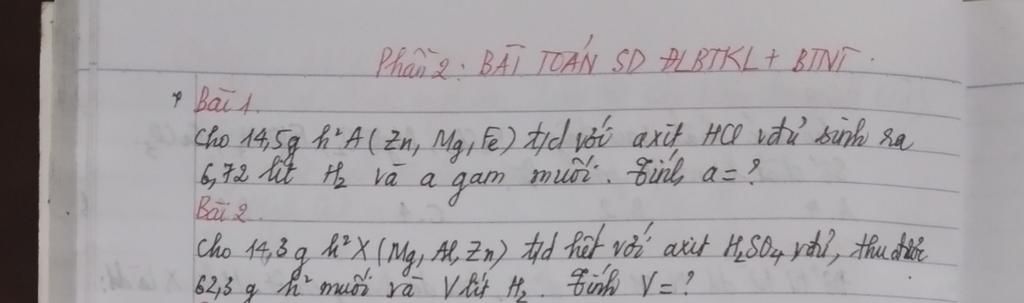 Phần 2: BÀI TOÁN SD ĐLBTKL + BTNT.
Bài 1.
Cho 14,5g h² A (Zn, Mg, Fe) t/d với axit HCl vđủ sinh ra
6,72 lit H₂ và a gam muối. Tính a = ?
Bài 2.
Cho 14,3 g h² X (Mg, Al, Zn) t/d hết với axit H₂SO₄ vđủ, thu được
62,3 g h² muối và V lít H₂. Tính V = ?